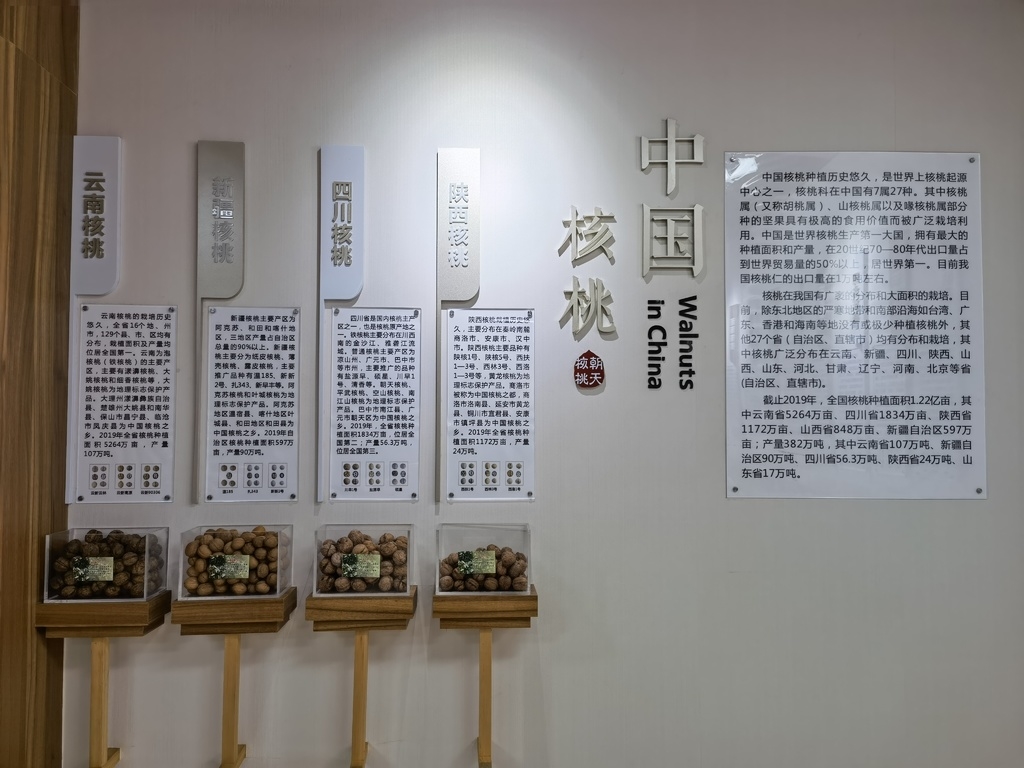 云南核桃
云南核桃的栽培历史
悠久，全省16个地、州
市，129个县、市、区均有分
布，栽植面积及产量均
位居全国第一。云南为泡
核桃（铁核桃）的主要产
区，主要有漾濞核桃、大
姚核桃和细香核桃等，大
姚核桃为地理标志保护产
品。大理州漾濞彝族自治
县、楚雄州大姚县和南华
县、保山市昌宁县、临沧
市凤庆县为中国核桃之
乡。2019年全省核桃种植
面积5264万亩，产量
107万吨。
新疆核桃
新疆核桃主要产区为
阿克苏、和田和喀什地
区，三地区产量占自治区
总量的90%以上，新疆核
桃主要分为纸皮核桃、薄
壳核桃、露皮核桃，主要
推广品种有温185、新新
2号、扎343、新早丰等。阿
克苏核桃和叶城核桃为
地理标志保护产品。阿克苏
地区温宿县、喀什地区叶
城县、和田地区和田县为
中国核桃之乡。2019年自
治区核桃种植面积597万
亩，产量90万吨。
温185
扎343
新新2号
四川核桃
四川省是国内核桃主产
区之一，也是核桃原产地之
一。铁核桃主要分布在川西
南的金沙江、雅砻江流
域。普通核桃主要产区为
凉山州、广元市、巴中市
等市州，主要推广的品种
有盐源早、硕星、川早1
号、清香等。朝天核桃、
平武核桃、空山核桃、南
江山核桃为地理标志保护
产品。巴中市南江县、广
元市朝天区为中国核桃之
乡。2019年，全省核桃种
植面积1834万亩，位居全
国第二；产量56.3万吨，
位居全国第三。
川早1号
盐源早
硕星
陕西核桃
陕西核桃栽植历史悠
久，主要分布在秦岭南麓
商洛市、安康市、汉中
市。陕西核桃主要品种有
陕核1号、陕核5号、西扶
1—3号、西林3号、西洛
1—3号等，黄龙核桃为地
理标志保护产品，商洛市
被称为中国核桃之都，商
洛市洛南县、延安市黄龙
县、铜川市宜君县、安康
市镇坪县为中国核桃之
乡。2019年全省核桃种植
面积1172万亩，产量
24万吨。
中国
核桃
Walnuts
in China
朝天
核桃
中国核桃种植历史悠久，是世界上核桃起源
中心之一，核桃科在中国有7属27种。其中核桃
属（又称胡桃属）、山核桃属以及喙核桃属部分
种的坚果具有极高的食用价值而被广泛栽培利
用。中国是世界核桃生产第一大国，拥有最大的
种植面积和产量，在20世纪70—80年代出口量占
到世界贸易量的50%以上，居世界第一。目前我
国核桃仁的出口量在1万吨左右。
核桃在我国有广泛的分布和大面积的栽培。目
前，除东北地区的严寒地带和南部沿海如台湾、广
东、香港和海南等地没有或极少种植核桃外，其
他27个省（自治区、直辖市）均有分布和栽培，其
中核桃广泛分布在云南、新疆、四川、陕西、山
西、山东、河北、甘肃、辽宁、河南、北京等省
(自治区、直辖市)。
截止2019年，全国核桃种植面积1.22亿亩，其
中云南省5264万亩、四川省1834万亩、陕西省
1172万亩，山西省848万亩、新疆自治区597万
亩；产量382万吨，其中云南省107万吨、新疆自
治区90万吨、四川省56.3万吨、陕西省24万吨、山
东省17万吨。